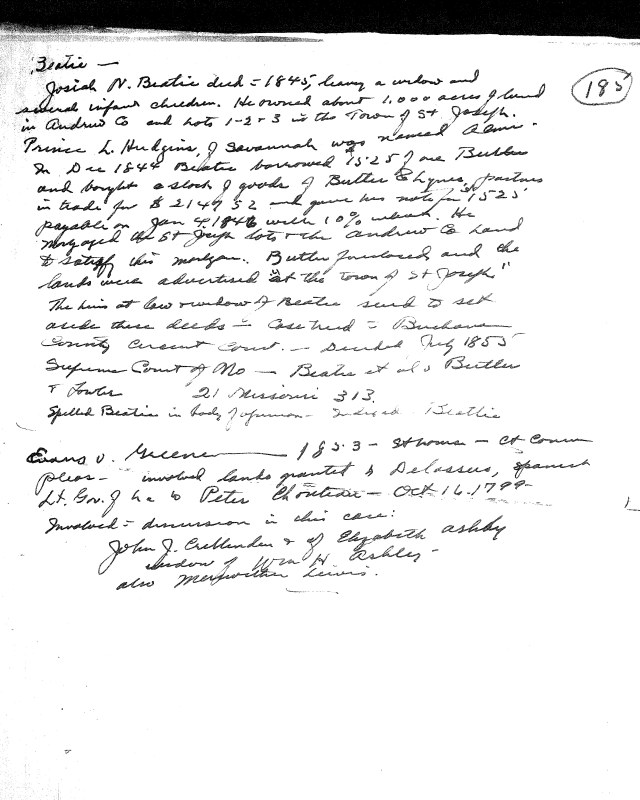 Beatie —
185
Josiah N. Beatie died = 1845, leavg a widow and
several infant children. He owned about 1.000 acres of land
in Andrew Co and Lots 1-2-3 in the Town of St Joseph.
Prince L. Hudgins, of Savannah was named Admr.
In Dec 1844 Beatie borrowed 1525 of one Butler
and bought a stock of goods of Butler & Lynes, partners
in trade for $ 2147 52 and gave his note for 1525
payable on Jan 4, 1846 with 10% interest. He
mortgaged the St Joseph lots & the Andrew Co Land
to satisfy this mortgage. Butler foreclosed and the
lands were advertised "at the Town of St Joseph"
The heirs at law & widow of Beatie sued to set
aside these deeds = Case tried = Buchanan
County Circuit Court. — Decided July 1855
Supreme Court of Mo — Beatie et al v Butler
& Fowler 21 Missouri 313.
Spelled Beatie in body of opinion — Indexed Beattie
Evans v. Greene — 1853 — St Louis — Ct Comm
pleas — involved lands granted by Delassus, Spanish
Lt. Gov. of La to Peter Chouteau — Oct 16. 1799
Involved = discussion in this case:
John J. Crittenden & of Elizabeth Ashby
widow of Wm H Ashley —
also Meriwether Lewis.